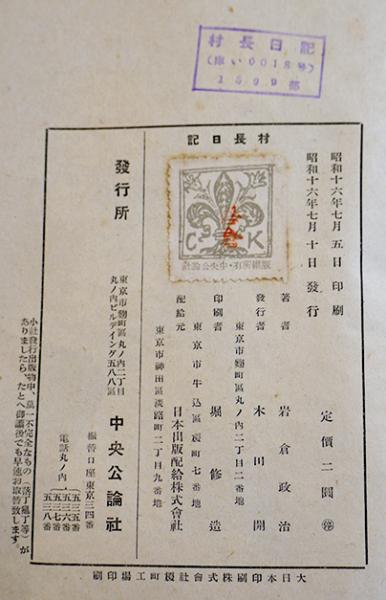 村長日記
(庫い0018号)
1599部
昭和十六年七月五日印刷
昭和十六年七月十日發行
村長日記
C K
版權所有・中央公論社
定價二圓
著者 岩倉政治
發行者 木田開
東京市麹町區丸ノ內二丁目二番地
印刷者 堀修造
東京市牛込區 町七番地
配給元 日本出版配給株式會社
東京市神田區淡路町二丁目九番地
發行所
東京市麹町區丸ノ內二丁目
丸ノ內ビルデイング五八八區
中央公論社
振替口座東京三四番
電話丸ノ內
五三五番
五三六番
五三七番
五三八番
小社發行出版物中、萬一不完全なもの(落丁亂丁等)が
ありましたら、たとへ御讀後でも早速お取替致します。
大日本印刷株式會社榎町工場印刷